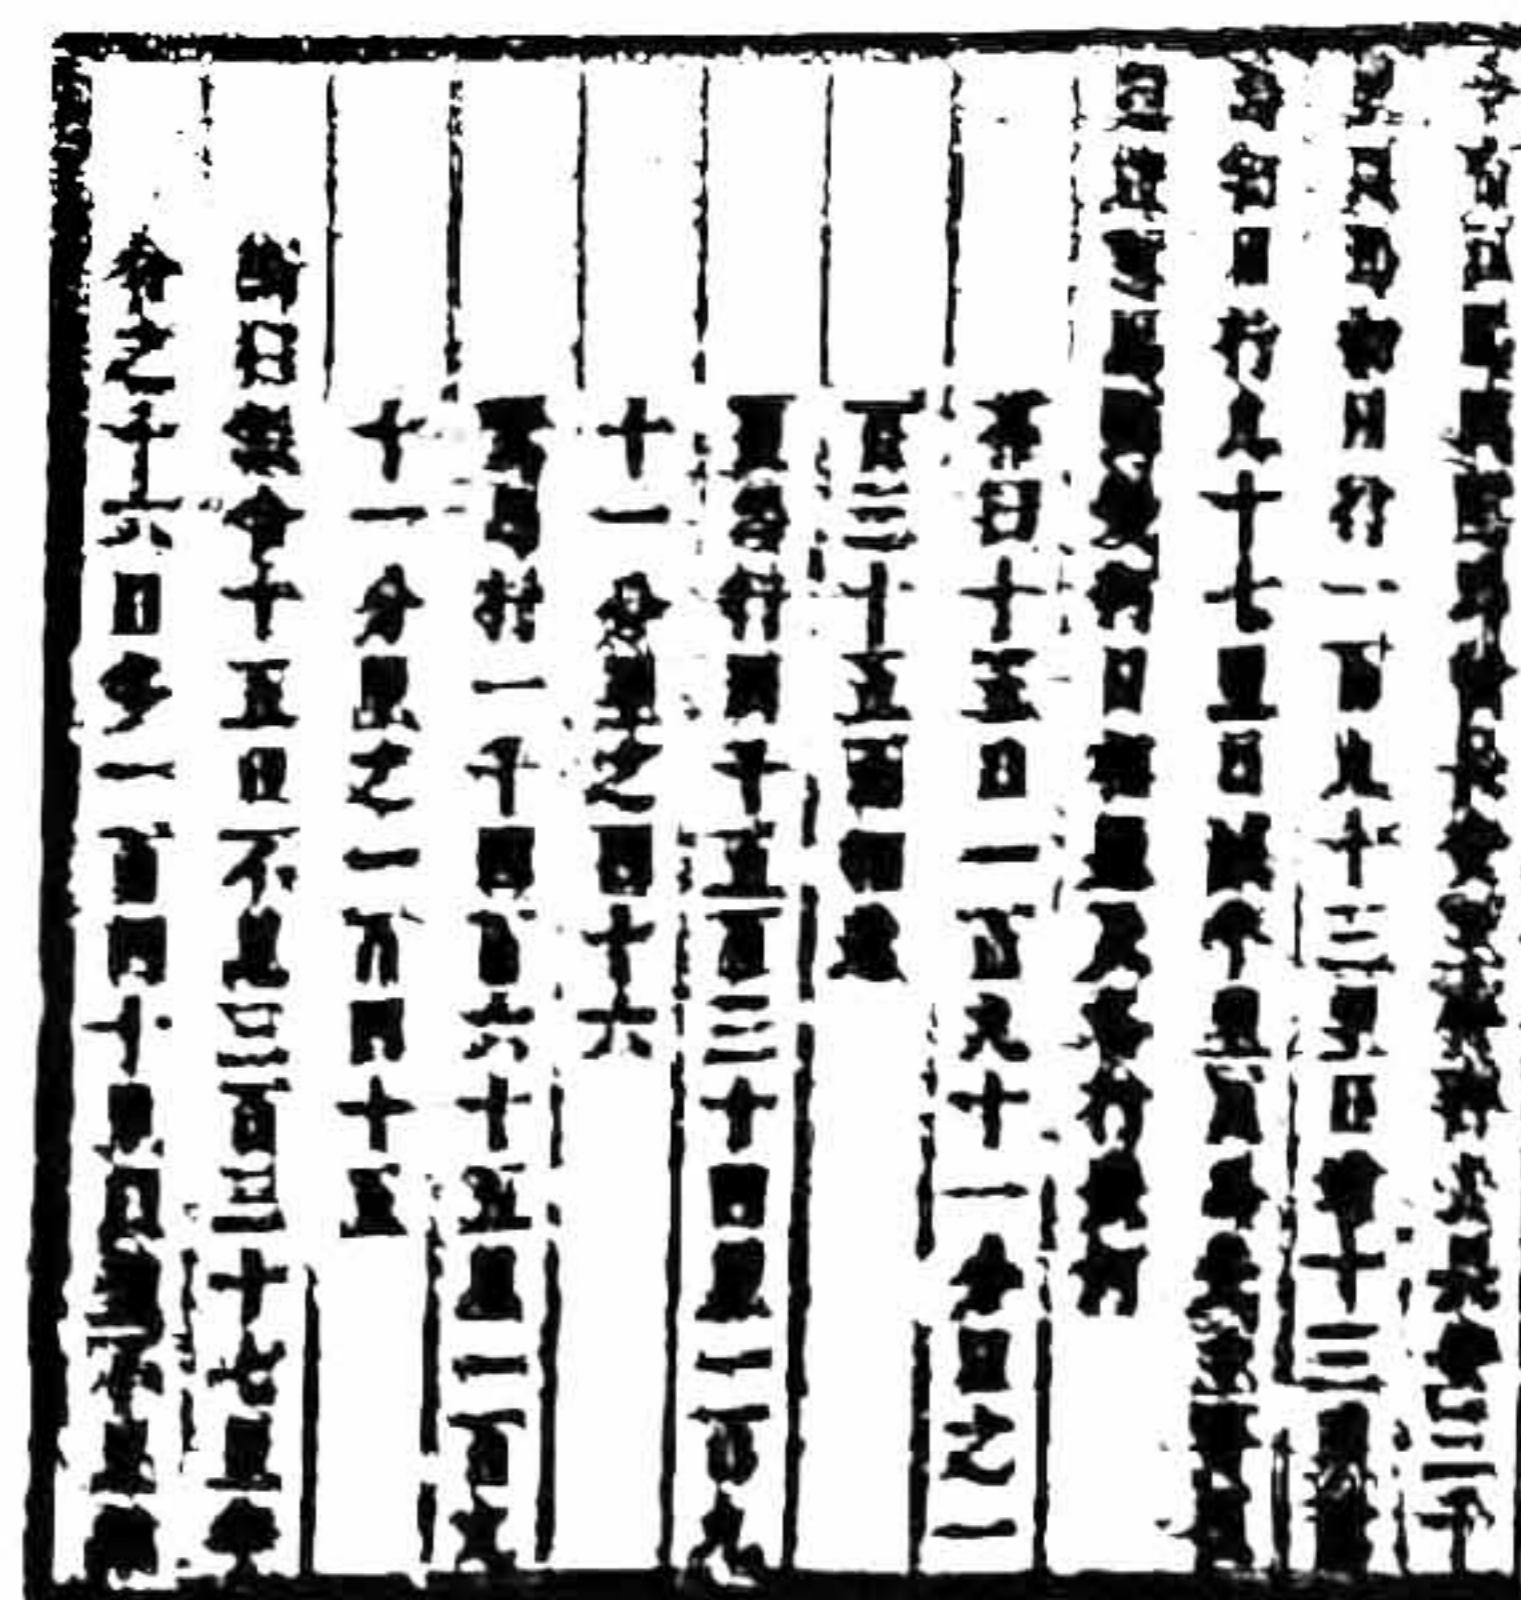 今有良馬與駑馬發長安至齊齊去長安三千
里良馬初日行一百九十三里日增十三里駑
馬初日行九十七里日減半里良馬先至齊復
還迎駑馬問幾何日相逢及各行幾何
荅曰十五日一百九十一分日之一
百三十五而相逢
良馬行四千五百三十四里一百九
十一分里之四十六
駑馬行一千四百六十五里一百九
十一分里之一百四十五
術曰假令十五日不足三百三十七里半
令之十六日多一百四十里以盈不足維